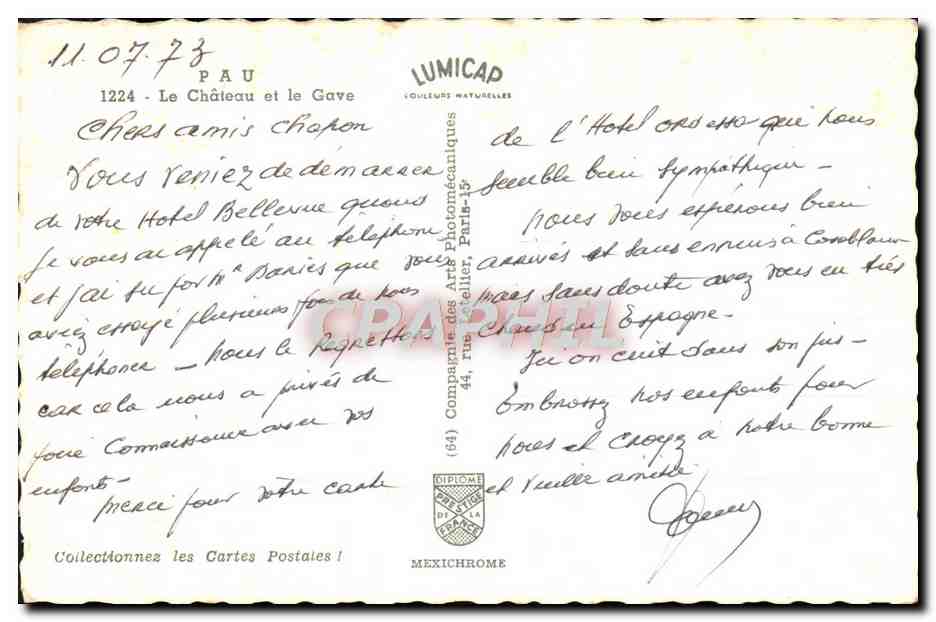 11.07.73
PAU
1224 - Le Château et le Gave
LUMICAP
COULEURS NATURELLES
Chers amis Chapon
Vous veniez de démarrer
de votre Hotel Bellevue quand
je vous ai appelé au téléphone
et j'ai su par Mr que vous
aviez essayé plusieurs fois de nous
téléphoner - nous le regrettons
car cela nous a privés de
faire connaissance avec vos
enfants -
merci pour votre carte
Collectionnez les Cartes Postales !
(64) Compagnie des Arts Photomécaniques
44, rue Letellier, Paris-15e
CPAPHIL
DIPLOME
PRESTIGE
DE LA
FRANCE
MEXICHROME
de l'Hotel Ordessa qui nous
semble bien sympathique -
nous vous espérons bien
arrivés et sans ennuis à Casablanca
mais sans doute avez vous eu très
chaud en Espagne -
Ici on cuit dans son jus -
Embrassez nos enfants pour
nous et croyez à notre bonne
et vieille amitié